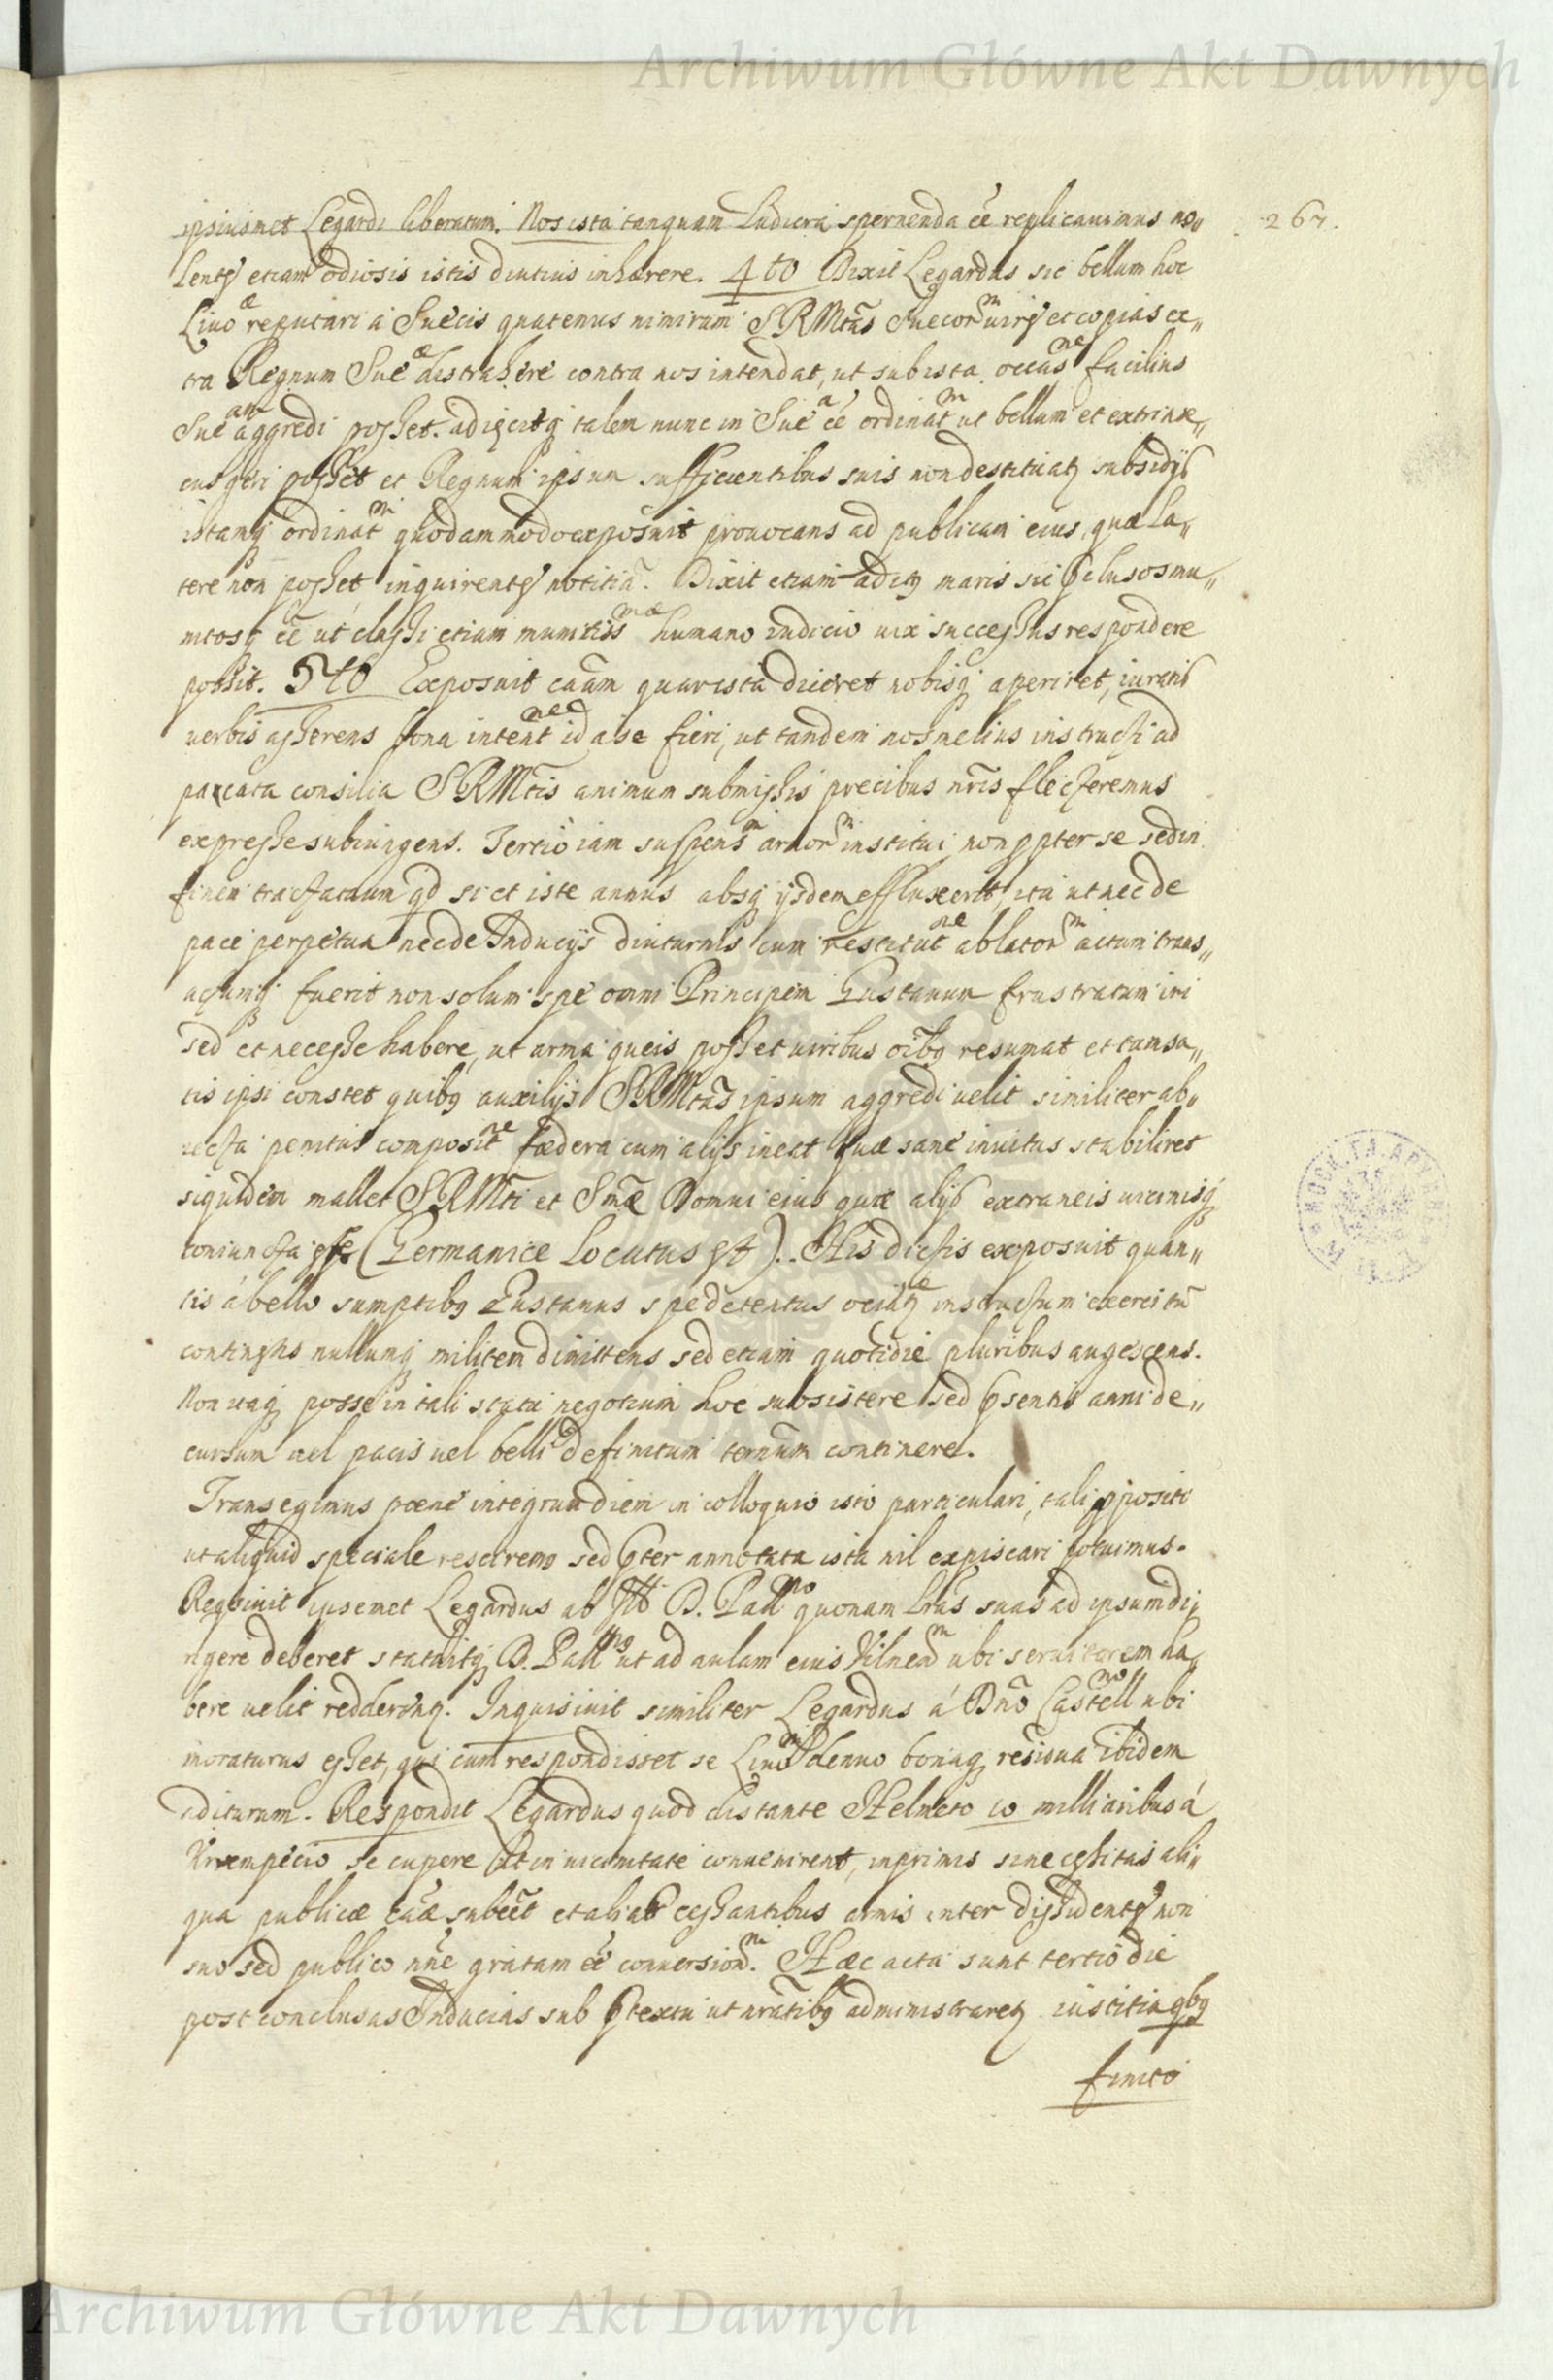 Archiwum Główne Akt Dawnych
267.
ipsiusmet Legardi liberatum. Nos ista tanquam Ludicra spernenda eē replicauimus no„
lentę etiam odiosis istis diutius inhærere. 4to Dixit Legardus sic bellum hoc
Liuoæ reputari a Suecis quatenus nimirum SRMtas Suecorm uirę et copias ex„
tra Regnum Sueæ distrahere contra nos intendat, ut sub ista occasne facilius
Sueam aggredi posset. adijcitq talem nunc in Suea eē ordinatm ut bellum et extrinse„
cus geri posset et Regnum ipsum sufficientibus suis non destituatꝫ subsidijs
istamq ordinatm quodammodo exposuit prouocans ad publicam eius, quæ la„
tere non posset inquirentę notitiā. Dixit etiam aditꝫ maris sic pclusos mu„
nitosq eē ut classi etiam munitissmæ humano iudicio uix successus respondere
possit. 5to Exposuit cāam quare ista diceret nobisq aperiret, iuratis
uerbis asserens bona intentne id a se fieri, ut tandem nos melius instructi ad
paccata consilia SRMtis animum submissis precibus nr̄is flecteremus
expresse subiungens. Tertiò iam suspensm armorm institui non ppter se sed in
finem tractatuum qd si et iste annus absq ijsdem effluxerit, ita ut nec de
pace perpetua nec de Inducijs diuturnis cum restitutne ablatorm actum trans„
actumq fuerit non solum spe omni Principem Gustauum frustratum iri
sed et necesse habere, ut arma queis posset uiribus oībꝫ resumat et cum sa„
tis ipsi constet quibꝫ auxilijs SRMtas ipsum aggredi uelit similiter ab„
iecta penitus compositne fœdera cum alijs ineat quæ sanè inuitus stabiliret
siquidem mallet SRMti et Smæ Domui eius quæ alijs extraneis uicinisq
coniuncta esse (Germanice locutus est). His dictis exposuit quan„
tis a bello sumptibꝫ Gustauus spe detentus instructum exercitū
nullumq militem dimittens sed etiam quotidie pluribus augescens.
Non itaq posse in tali statu negotium hoc subsistere sed psentis anni de„
cursum uel pacis uel belli definitum termum continere.
Transegimus pœne integrum diem in colloquio isto particulari, tali ppositi
ut aliquid speciale resciremꝫ sed pter annotata ista nil expiscari potuimus.
Requiuit ipsemet Legardus ab Ill D. Pallno quonam lr̄as suas ad ipsum di„
rigere deberet statuitq D. Pallnꝫ ut ad aulam eius Vilnen̄m ubi seruitorem ha„
bere uelit redderenꝫ. Inquisiuit similiter Legardus á Dn̄o Castellno ubi
moraturus esset, qui cum respondisset se Liuoam denuo bonaq residua ibidem
aditurum. Respondit Legardus quod distante Helmeto 10 milliaribus á
se cupere ut in uicinitate conuenirent, inprimis si necessitas ali„
qua publicæ cāæ subēēt et alias cessantibus armis inter dissidentę non
suo sed publico nn̄e gratam eē conuersionm. Hæc acta sunt tertio die
post conclusas Inducias sub ptextu ut uratibꝫ administraretꝫ iustitia qbꝫ
finito
Archiwum Główne Akt Dawnych